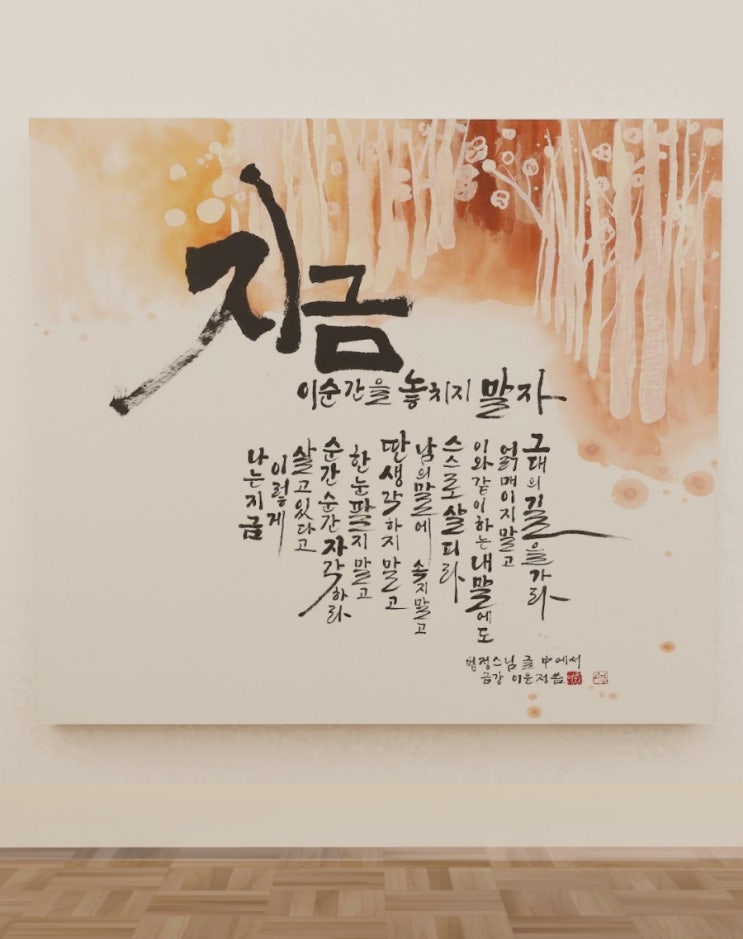 지금
이순간을 놓치지 말자
나는지금
이렇게
살고있다고
순간순간 자각하라
한눈팔지 말고
딴생각하지 말고
남의말에 속지말고
스스로 살피라
이와같이하는 내말에도
얽매이지말고
그대의길을 가라
법정스님 글 中에서
금강